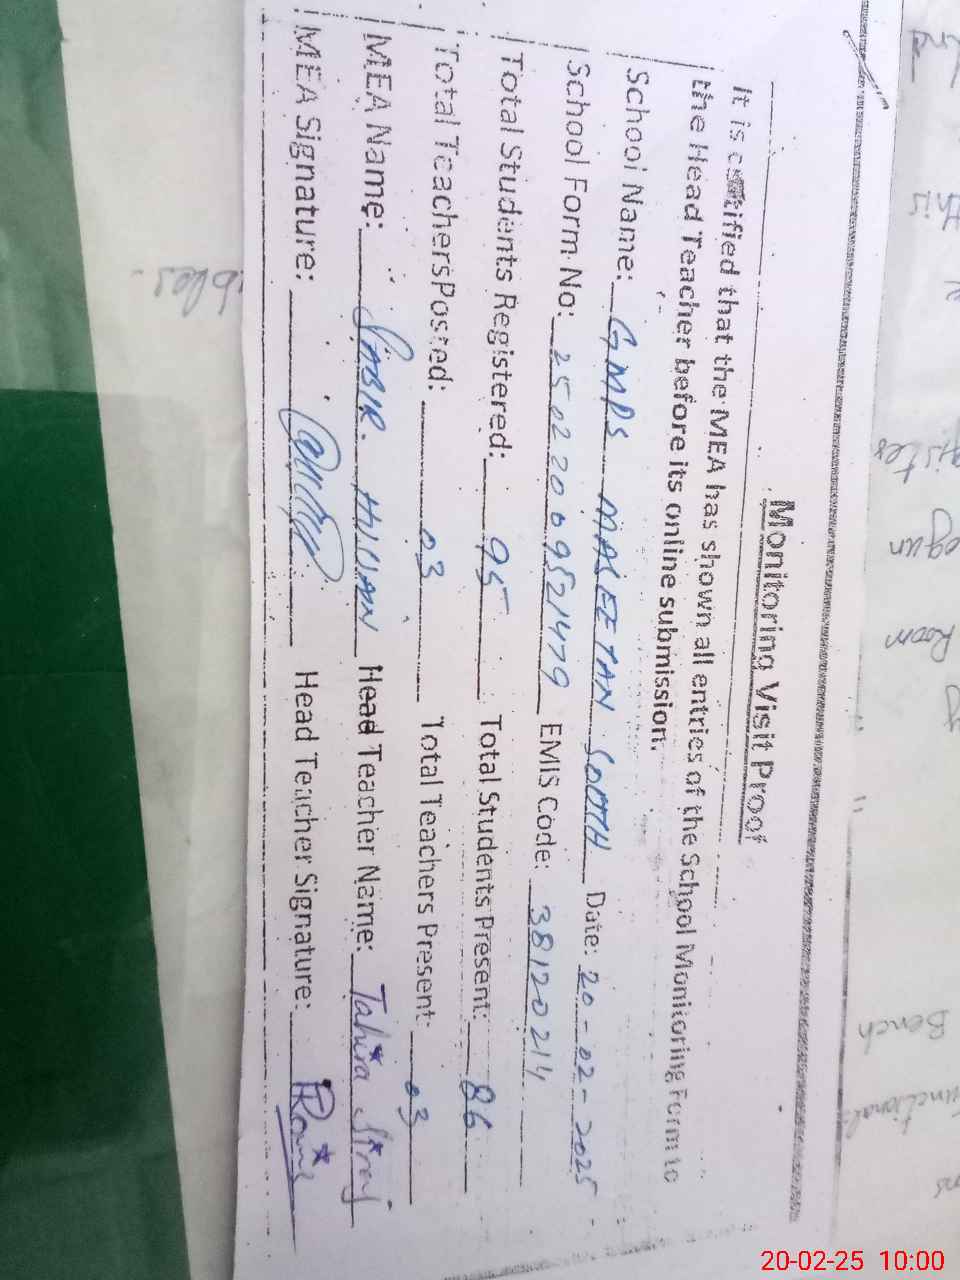 Monitoring Visit Proof
It is certified that the MEA has shown all entries of the School Monitoring Form to
the Head Teacher before its online submission.
School Name: GMPS MASEETAN SOUTH Date: 20-02-2025
School Form No: 25022009521479 EMIS Code: 38120214
Total Students Registered: 95 Total Students Present: 86
Total Teachers Posted: 03 Total Teachers Present: 03
MEA Name: SABIR HUSSAIN Head Teacher Name: Tahira Siraj
MEA Signature: Head Teacher Signature:
this
Room
Bench
20-02-25 10:00